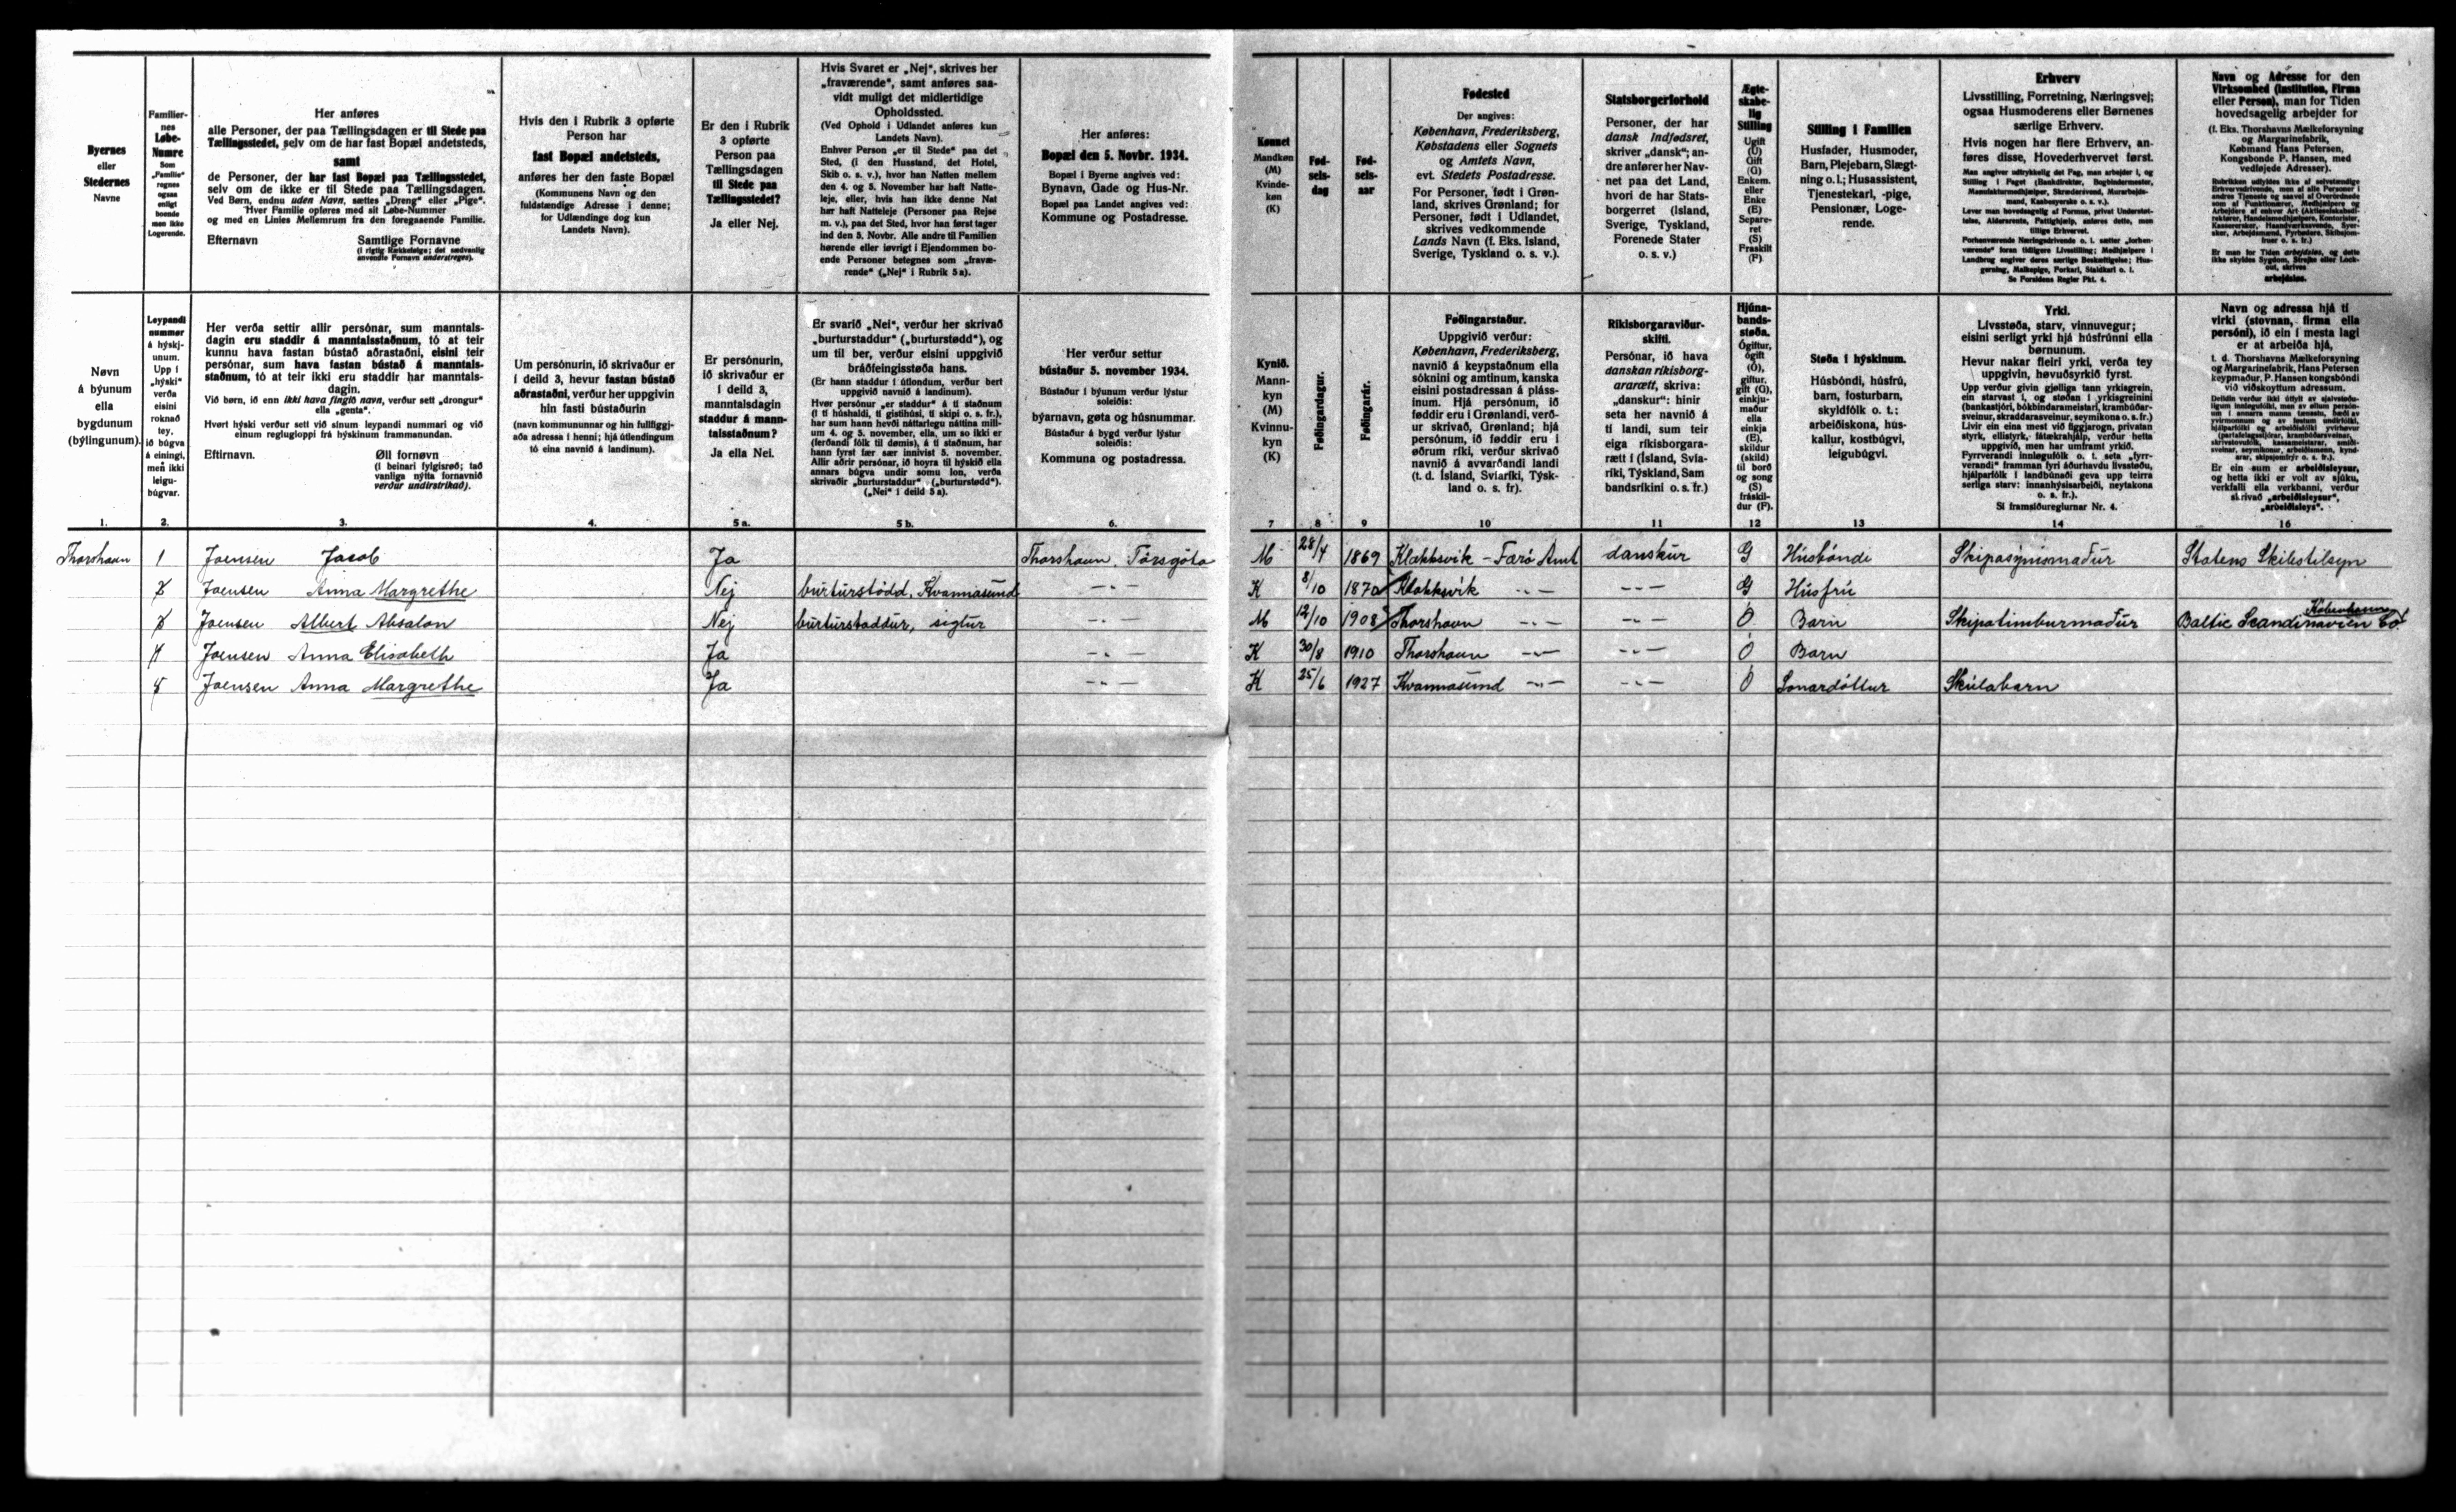 Byernes
eller
Stedernes
Navne
Familier-
nes
Løbe-
Numre
Som
„Familie“
regnes
ogsaa
enligt
boende
men ikke
Logerende.
Her anføres
alle Personer, der paa Tællingsdagen er til Stede paa
Tællingsstedet, selv om de har fast Bopæl andetsteds,
samt
de Personer, der har fast Bopæl paa Tællingsstedet,
selv om de ikke er til Stede paa Tællingsdagen.
Ved Børn, endnu uden Navn, sættes „Dreng“ eller „Pige“.
Hver Familie opføres med sit Løbe-Nummer
og med en Linies Mellemrum fra den foregaaende Familie.
Efternavn Samtlige Fornavne
(i rigtig Rækkefølge; det sædvanlig
anvendte Fornavn understreges).
Hvis den i Rubrik 3 opførte
Person har
fast Bopæl andetsteds,
anføres her den faste Bopæl
(Kommunens Navn og den
fuldstændige Adresse i denne;
for Udlændinge dog kun
Landets Navn).
Er den i Rubrik
3 opførte
Person paa
Tællingsdagen
til Stede paa
Tællingsstedet?
Ja eller Nej.
Hvis Svaret er „Nej“, skrives her
„fraværende“, samt anføres saa-
vidt muligt det midlertidige
Opholdssted.
(Ved Ophold i Udlandet anføres kun
Landets Navn).
Enhver Person „er til Stede“ paa det
Sted, (i den Husstand, det Hotel,
Skib o. s. v.), hvor han Natten mellem
den 4. og 5. November har haft Natte-
leje, eller, hvis han ikke denne Nat
har haft Natteleje (Personer paa Rejse
m. v.), paa det Sted, hvor han først tager
ind den 5. Novbr. Alle andre til Familien
hørende eller iøvrigt i Ejendommen bo-
ende Personer betegnes som „fravæ-
rende“ („Nej“ i Rubrik 5 a).
Her anføres:
Bopæl den 5. Novbr. 1934.
Bopæl i Byerne angives ved:
Bynavn, Gade og Hus-Nr.
Bopæl paa Landet angives ved:
Kommune og Postadresse.
Kønnet
Mandkøn
(M)
Kvinde-
køn
(K)
Fød-
sels-
dag
Fød-
sels-
aar
Fødested
Der angives:
København, Frederiksberg,
Købstadens eller Sognets
og Amtets Navn,
evt. Stedets Postadresse.
For Personer, født i Grøn-
land, skrives Grønland; for
Personer, født i Udlandet,
skrives vedkommende
Lands Navn (f. Eks. Island,
Sverige, Tyskland o. s. v.).
Statsborgerforhold
Personer, der har
dansk Indfødsret,
skriver „dansk“; an-
dre anfører her Nav-
net paa det Land,
hvori de har Stats-
borgerret (Island,
Sverige, Tyskland,
Forenede Stater
o. s. v.)
Ægte-
skabe-
lig
Stilling
Ugift
(U)
Gift
(G)
Enkem.
eller
Enke
(E)
Separe-
ret
(S)
Fraskilt
(F).
Stilling i Familien
Husfader, Husmoder,
Barn, Plejebarn, Slægt-
ning o. l.; Husassistent,
Tjenestekarl, -pige,
Pensionær, Loge-
rende.
Erhverv
Livsstilling, Forretning, Næringsvej;
ogsaa Husmoderens eller Børnenes
særlige Erhverv.
Hvis nogen har flere Erhverv, an-
føres disse, Hovederhvervet først.
Se Forsidens Regler Pkt. 4.
Navn og Adresse for den
Virksomhed (Institution, Firma
eller Person), man for Tiden
hovedsagelig arbejder for
(f. Eks. Thorshavns Mælkeforsyning
og Margarinefabrik,
Købmand Hans Petersen,
Kongsbonde P. Hansen, med
vedføjede Adresser).
arbejdsløs.
Nøvn
á býunum
ella
bygdunum
(býlingunum).
Leypandi
nummer
á hýskj-
unum.
Upp í
„hýski“
verða
eisini
roknað
tey,
ið búgva
á einingi,
men ikki
leigu-
búgvar.
Her verða settir allir persónar, sum manntals-
dagin eru staddir á manntalsstaðnum, tó at teir
kunnu hava fastan bústað aðrastaðni, eisini teir
persónar, sum hava fastan bústað á manntals-
staðnum, tó at teir ikki eru staddir har manntals-
dagin.
Við børn, ið enn ikki hava fingið navn, verður sett „drongur“
ella „genta“.
Hvørt hýski verður sett við sínum leypandi nummari og við
einum reglugloppi frá hýskinum frammanundan.
Eftirnavn. Øll fornøvn
(í beinari fylgisrøð; tað
vanliga nýtta fornavnið
verður undirstrikað).
Um persónurin, ið skrivaður er
í deild 3, hevur fastan bústað
aðrastaðni, verður her uppgivin
hin fasti bústaðurin
(navn kommununnar og hin fullfíggj-
aða adressa í henni; hjá útlendingum
tó eina navnið á landinum).
Er persónurin,
ið skrivaður er
í deild 3,
manntalsdagin
staddur á mann-
talsstaðnum?
Ja ella Nei.
Er svarið „Nei“, verður her skrivað
„burturstaddur“ („burturstødd“), og
um til ber, verður eisini uppgivið
bráðfeingisstøða hans.
(Er hann staddur í útlondum, verður bert
uppgivið navnið á landinum).
Hvør persónur „er staddur“ á tí staðnum
(í tí húshaldi, tí gistihúsi, tí skipi o. s. fr.),
har sum hann hevði náttarlegu náttina mill-
um 4. og 5. november, ella, um so ikki er
(ferðandi fólk til dømis), á tí staðnum, har
hann fyrst fær sær innivist 5. november.
Allir aðrir persónar, ið hoyra til hýskið ella
annars búgva undir somu lon, verða
skrivaðir „burturstaddur“ („burturstødd“).
(„Nei“ í deild 5 a).
Her verður settur
bústaður 5. november 1934.
Bústaður í býunum verður lýstur
soleiðis:
býarnavn, gøta og húsnummar.
Bústaður á bygd verður lýstur
soleiðis:
Kommuna og postadressa.
Kynið.
Mann-
kyn
(M)
Kvinnu-
kyn
(K)
Føðingardagur.
Føðingarár.
Føðingarstaður.
Uppgivið verður:
København, Frederiksberg,
navnið á keypstaðnum ella
sóknini og amtinum, kanska
eisini postadressan á pláss-
inum. Hjá persónum, ið
føddir eru í Grønlandi, verð-
ur skrivað, Grønland; hjá
persónum, ið føddir eru í
øðrum ríki, verður skrivað
navnið á avvarðandi landi
(t. d. Ísland, Svíaríki, Týsk-
land o. s. fr).
Ríkisborgaraviður-
skifti.
Persónar, ið hava
danskan ríkisborg-
ararætt, skriva:
„danskur“: hinir
seta her navnið á
tí landi, sum teir
eiga ríkisborgara-
rætt í (Ísland, Svía-
ríki, Týskland, Sam
bandsríkini o. s. fr.)
Hjúna-
bands-
støða.
Ógiftur,
ógift
(Ó),
giftur,
gift (G),
einkju-
maður
ella
einkja
(E),
skildur
(skild)
til borð
og song
(S)
fráskil-
dur (F).
Støða í hýskinum.
Húsbóndi, húsfrú,
barn, fosturbarn,
skyldfólk o. t.:
arbeiðiskona, hús-
kallur, kostbúgvi,
leigubúgvi.
Yrki.
Livsstøða, starv, vinnuvegur;
eisini serligt yrki hjá húsfrúnni ella
børnunum.
Hevur nakar fleiri yrki, verða tey
uppgivin, høvuðsyrkið fyrst.
Sí framsíðureglurnar Nr. 4.
Navn og adressa hjá tí
virki (stovnan, firma ella
persóni), ið ein í mesta lagi
er at arbeiða hjá,
t. d. Thorshavns Mælkeforsyning
og Margarinefabrik, Hans Petersen
keypmaður, P. Hansen kongsbóndi
við viðskoyttum adressum.
Er ein sum er arbeiðisleysur,
og hetta ikki er volt av sjúku,
verkfalli ella verkbanni, verður
skrivað „arbeiðisleysur“,
„arbeiðisleys“.
1. 2. 3. 4. 5 a. 5 b. 6. 7 8 9 10 11 12 13 14 16
Thorshavn 1 Joensen Jacob Ja Thorshavn, Tórsgöta M 28/4 1869 Klakksvik - Færö Amt danskur G Húsbóndi Skipasýnismaður Statens Skibstilsyn
2 Joensen Anna Margrethe Nej burturstödd, Kvannasund -"- K 8/10 1870 Klakksvik -"- -"- G Húsfrú
3 Joensen Albert Absalon Nej burturstaddur, sigtur -"- M 12/10 1908 Thorshavn -"- -"- Ó Barn Skipatimburmaður Baltic Scandinavien Co. København
4 Joensen Anna Elisabeth Ja -"- K 30/8 1910 Thorshavn -"- -"- Ó Barn
5 Joensen Anna Margrethe Ja -"- K 25/6 1927 Kvannasund -"- -"- Ó Sonardóttur Skúlabarn